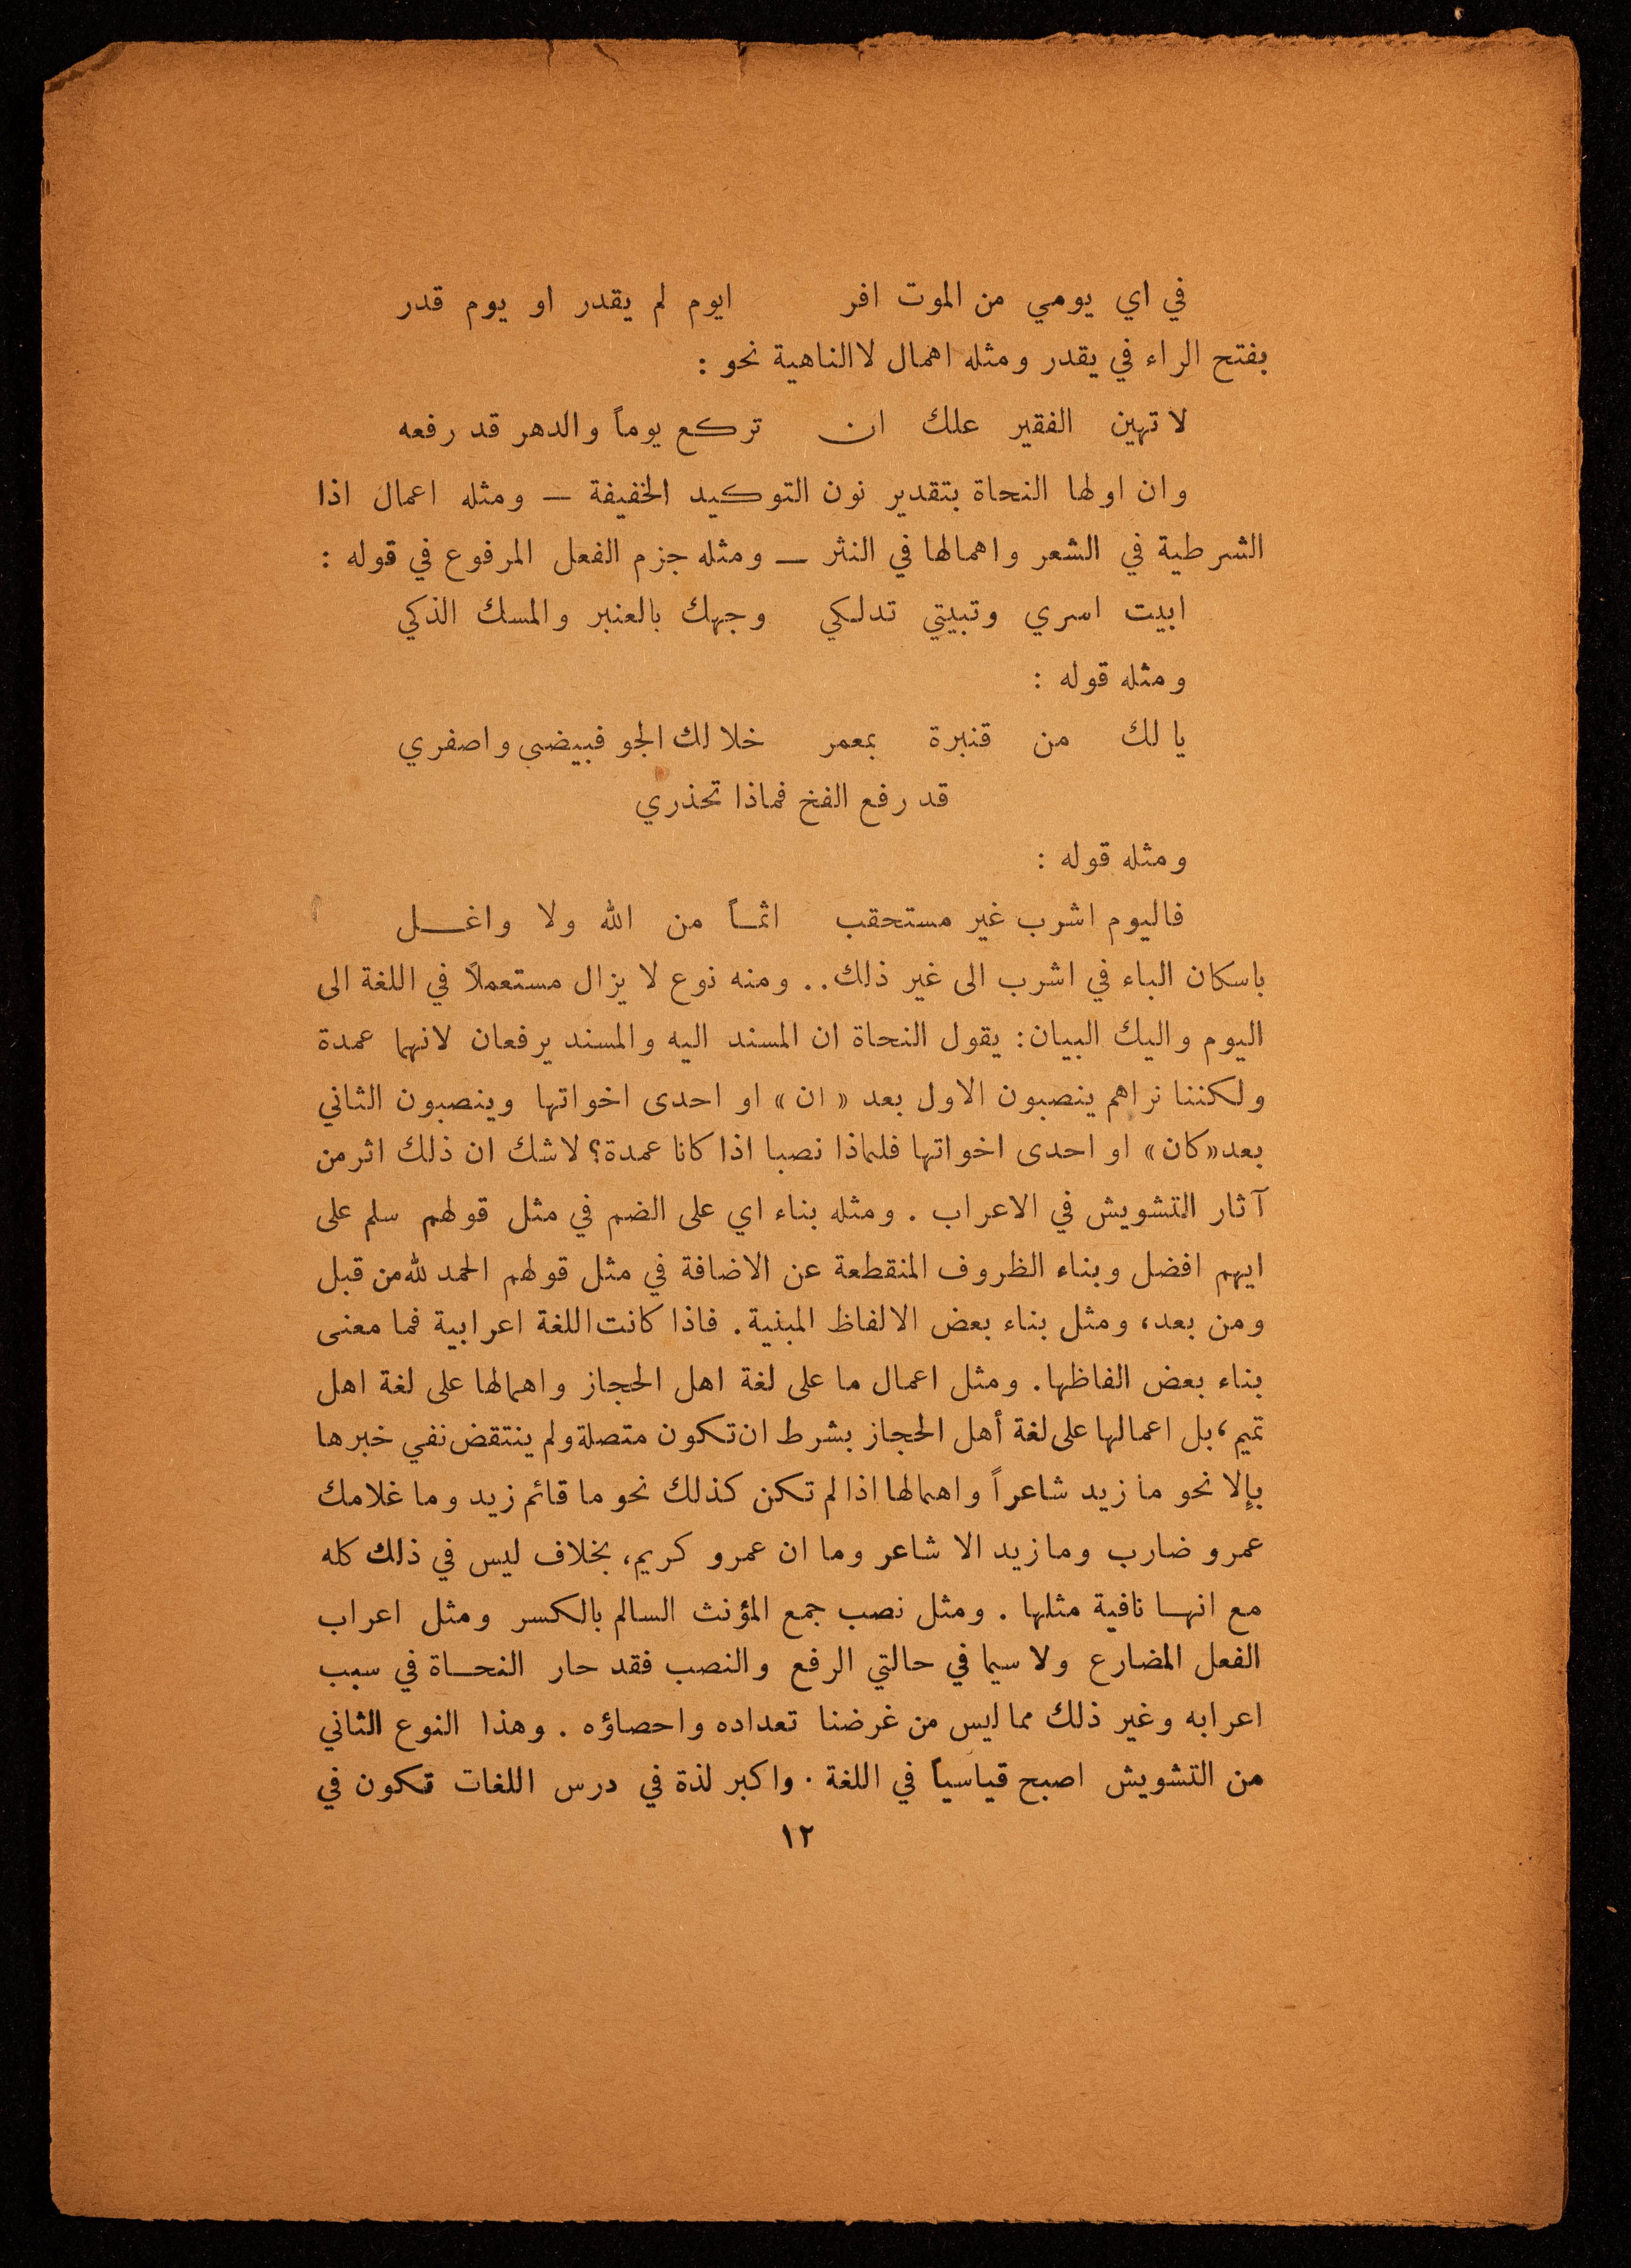 في اي يومي من الموت افر ايوم لم يقدر او يوم قدر
بفتح الراء في يقدر ومثله اهمال لا الناهية نحو :
لا تهين الفقير علك ان تركع يوماً والدهر قد رفعه
وان اولها النحاة بتقدير نون التوكيد الخفيفة — ومثله اعمال اذا
الشرطية في الشعر واهمالها في النثر — ومثله جزم الفعل المرفوع في قوله :
ابيت اسري وتبيتي تدلكي وجهك بالعنبر والمسك الذكي
ومثله قوله :
يا لك من قنبرة بمعمر خلا لك الجو فبيضي واصفري
قد رفع الفخ فماذا تحذري
ومثله قوله :
فاليوم اشرب غير مستحقب اثمـاً من الله ولا واغـــل
باسكان الباء في اشرب الى غير ذلك.. ومنه نوع لا يزال مستعملاً في اللغة الى
اليوم واليك البيان: يقول النحاة ان المسند اليه والمسند يرفعان لانهما عمدة
ولكننا نراهم ينصبون الاول بعد « ان » او احدى اخواتها وينصبون الثاني
بعد «كان» او احدى اخواتها فلماذا نصبا اذا كانا عمدة؟ لاشك ان ذلك اثر من
آثار التشويش في الاعراب . ومثله بناء اي على الضم في مثل قولهم سلم على
ايهم افضل وبناء الظروف المنقطعة عن الاضافة في مثل قولهم الحمد لله من قبل
ومن بعد، ومثل بناء بعض الالفاظ المبنية. فاذا كانت اللغة اعرابية فما معنى
بناء بعض الفاظها. ومثل اعمال ما على لغة اهل الحجاز واهمالها على لغة اهل
تميم، بل اعمالها على لغة أهل الحجاز بشرط ان تكون متصلة ولم ينتقض نفي خبرها
بإلا نحو ما زيد شاعراً واهمالها اذا لم تكن كذلك نحو ما قائم زيد وما غلامك
عمرو ضارب وما زيد الا شاعر وما ان عمرو كريم، بخلاف ليس في ذلك كله
مع انهـا نافية مثلها . ومثل نصب جمع المؤنث السالم بالكسر ومثل اعراب
الفعل المضارع ولا سيما في حالتي الرفع والنصب فقد حار النحـاة في سبب
اعرابه وغير ذلك مما ليس من غرضنا تعداده واحصاؤه . وهذا النوع الثاني
من التشويش اصبح قياسياً في اللغة . واكبر لذة في درس اللغات تكون في
١٢